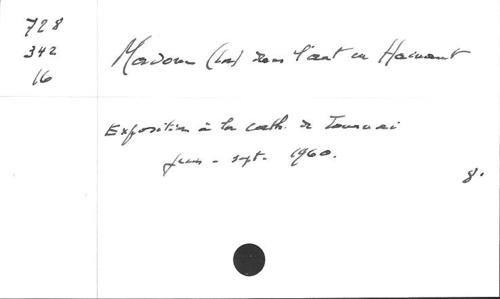 728
342
16
Madone (La) dans l'art en Hainaut
Exposition à la cath. de Tournai
juin - sept. 1960.
8°